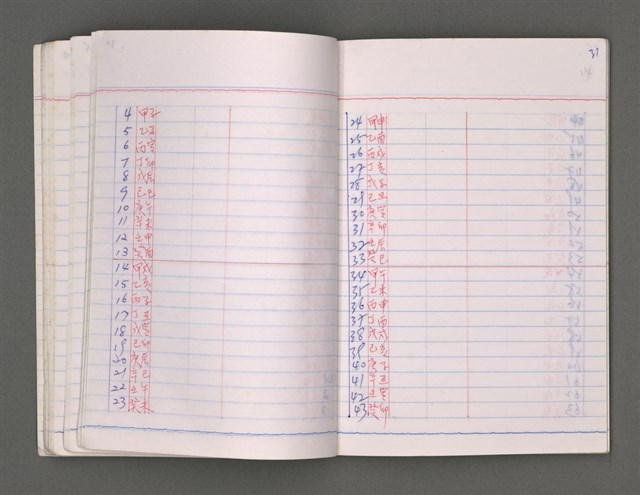 4 甲子
5 乙丑
6 丙寅
7 丁卯
8 戊辰
9 己巳
10 庚午
11 辛未
12 壬申
13 癸酉
14 甲戌
15 乙亥
16 丙子
17 丁丑
18 戊寅
19 己卯
20 庚辰
21 辛巳
22 壬午
23 癸未
31
24 甲申
25 乙酉
26 丙戌
27 丁亥
28 戊子
29 己丑
30 庚寅
31 辛卯
32 壬辰
33 癸巳
34 甲午
35 乙未
36 丙申
37 丁酉
38 戊戌
39 己亥
40 庚子
41 辛丑
42 壬寅
43 癸卯